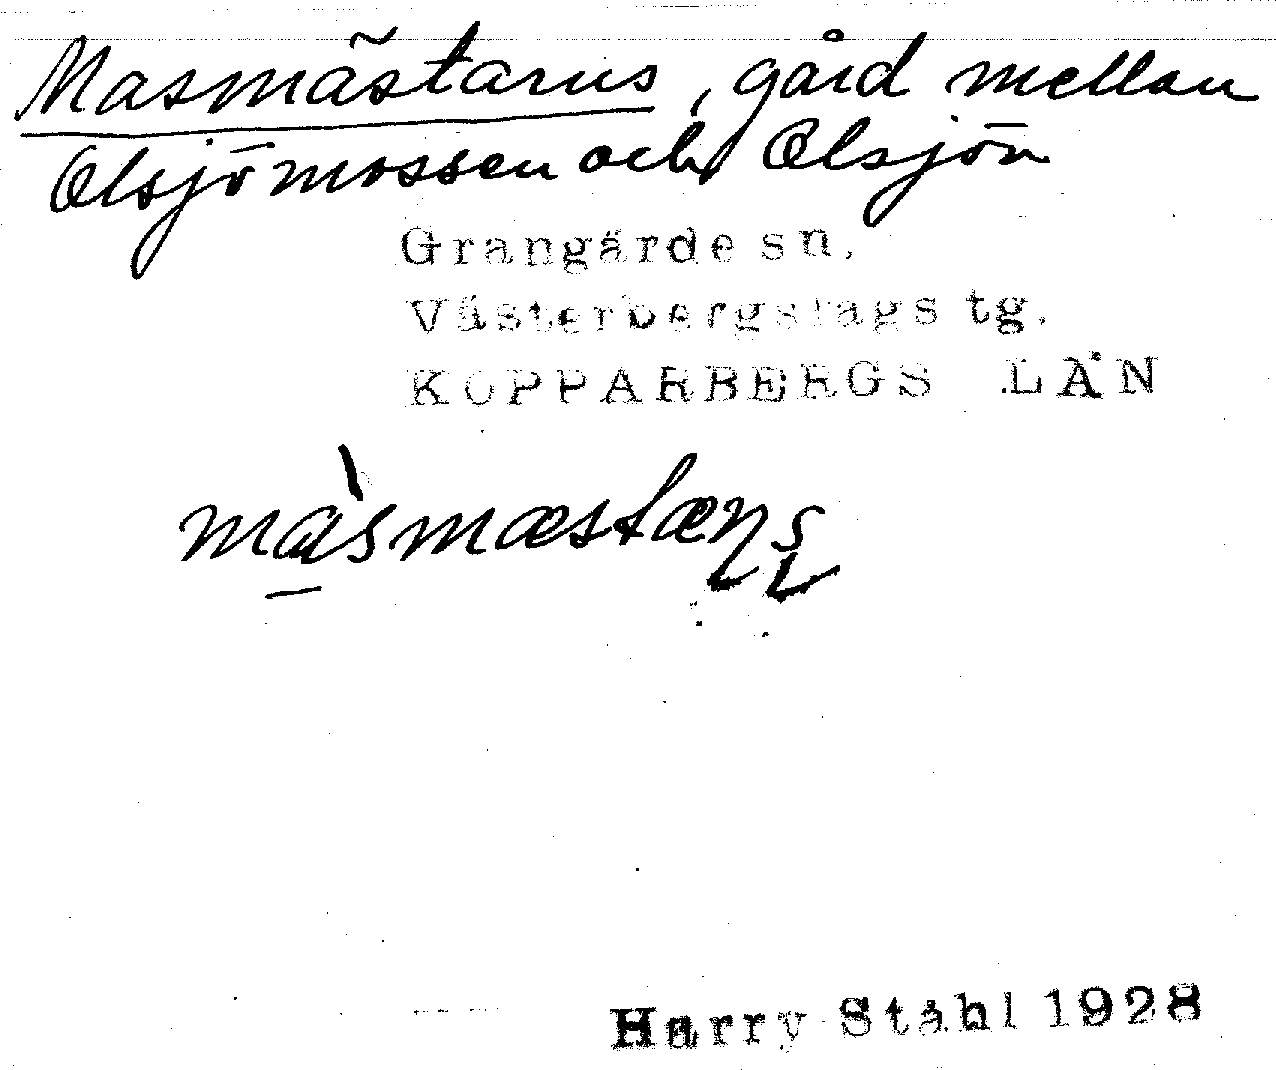 Masmästarns, gård mellan
Olsjömossen och Olsjön
Grangärde sn.
Västerbergslags tg.
KOPPARBERGS LÄN
Harry Ståhl 1928